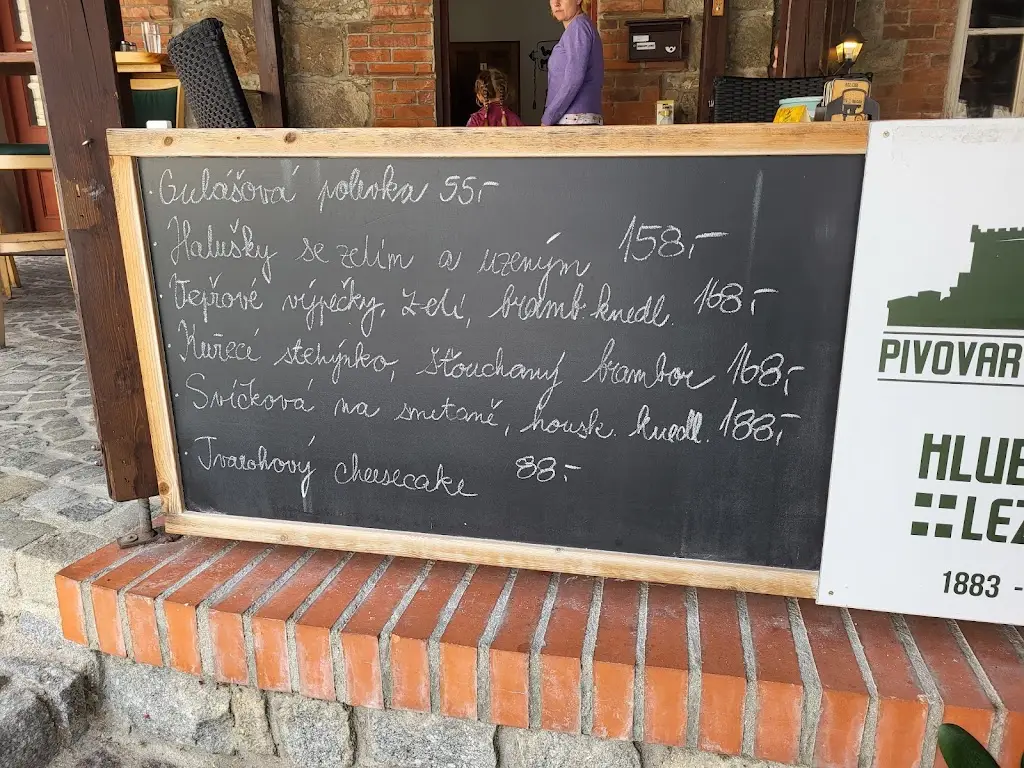 Gulášová polévka 55,-
Halušky se zelím a uzeným 158,-
Vepřové výpečky, zelí, bramb. knedl. 168,-
Kuřecí stehýnko, šťouchaný brambor 168,-
Svíčková na smetaně, housk. knedl. 188,-
Tvarohový cheesecake 88,-
PIVOVAR
HLUB
LEZ
1883 -